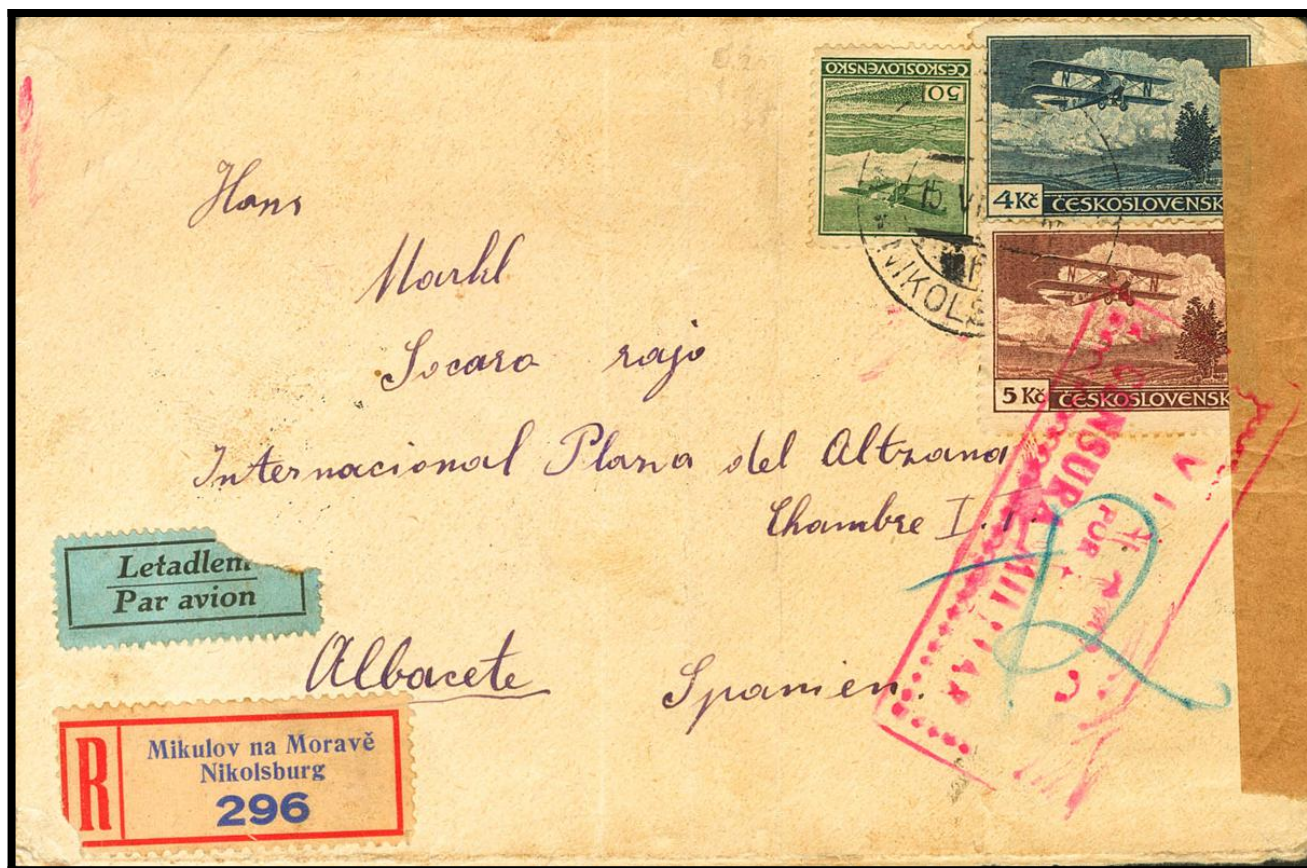 50
ČESKOSLOVENSKO
4 Kč ČESKOSLOVENSK
15 VI
MIKOLS
5 Kč ČESKOSLOVENSK
Hans
Markl
Socaro rajo
Internacional Plana del Altzana
Chambre I.
CENSURA MILITAR
POR
Letadlem
Par avion
Albacete Spanien.
R
Mikulov na Moravě
Nikolsburg
296